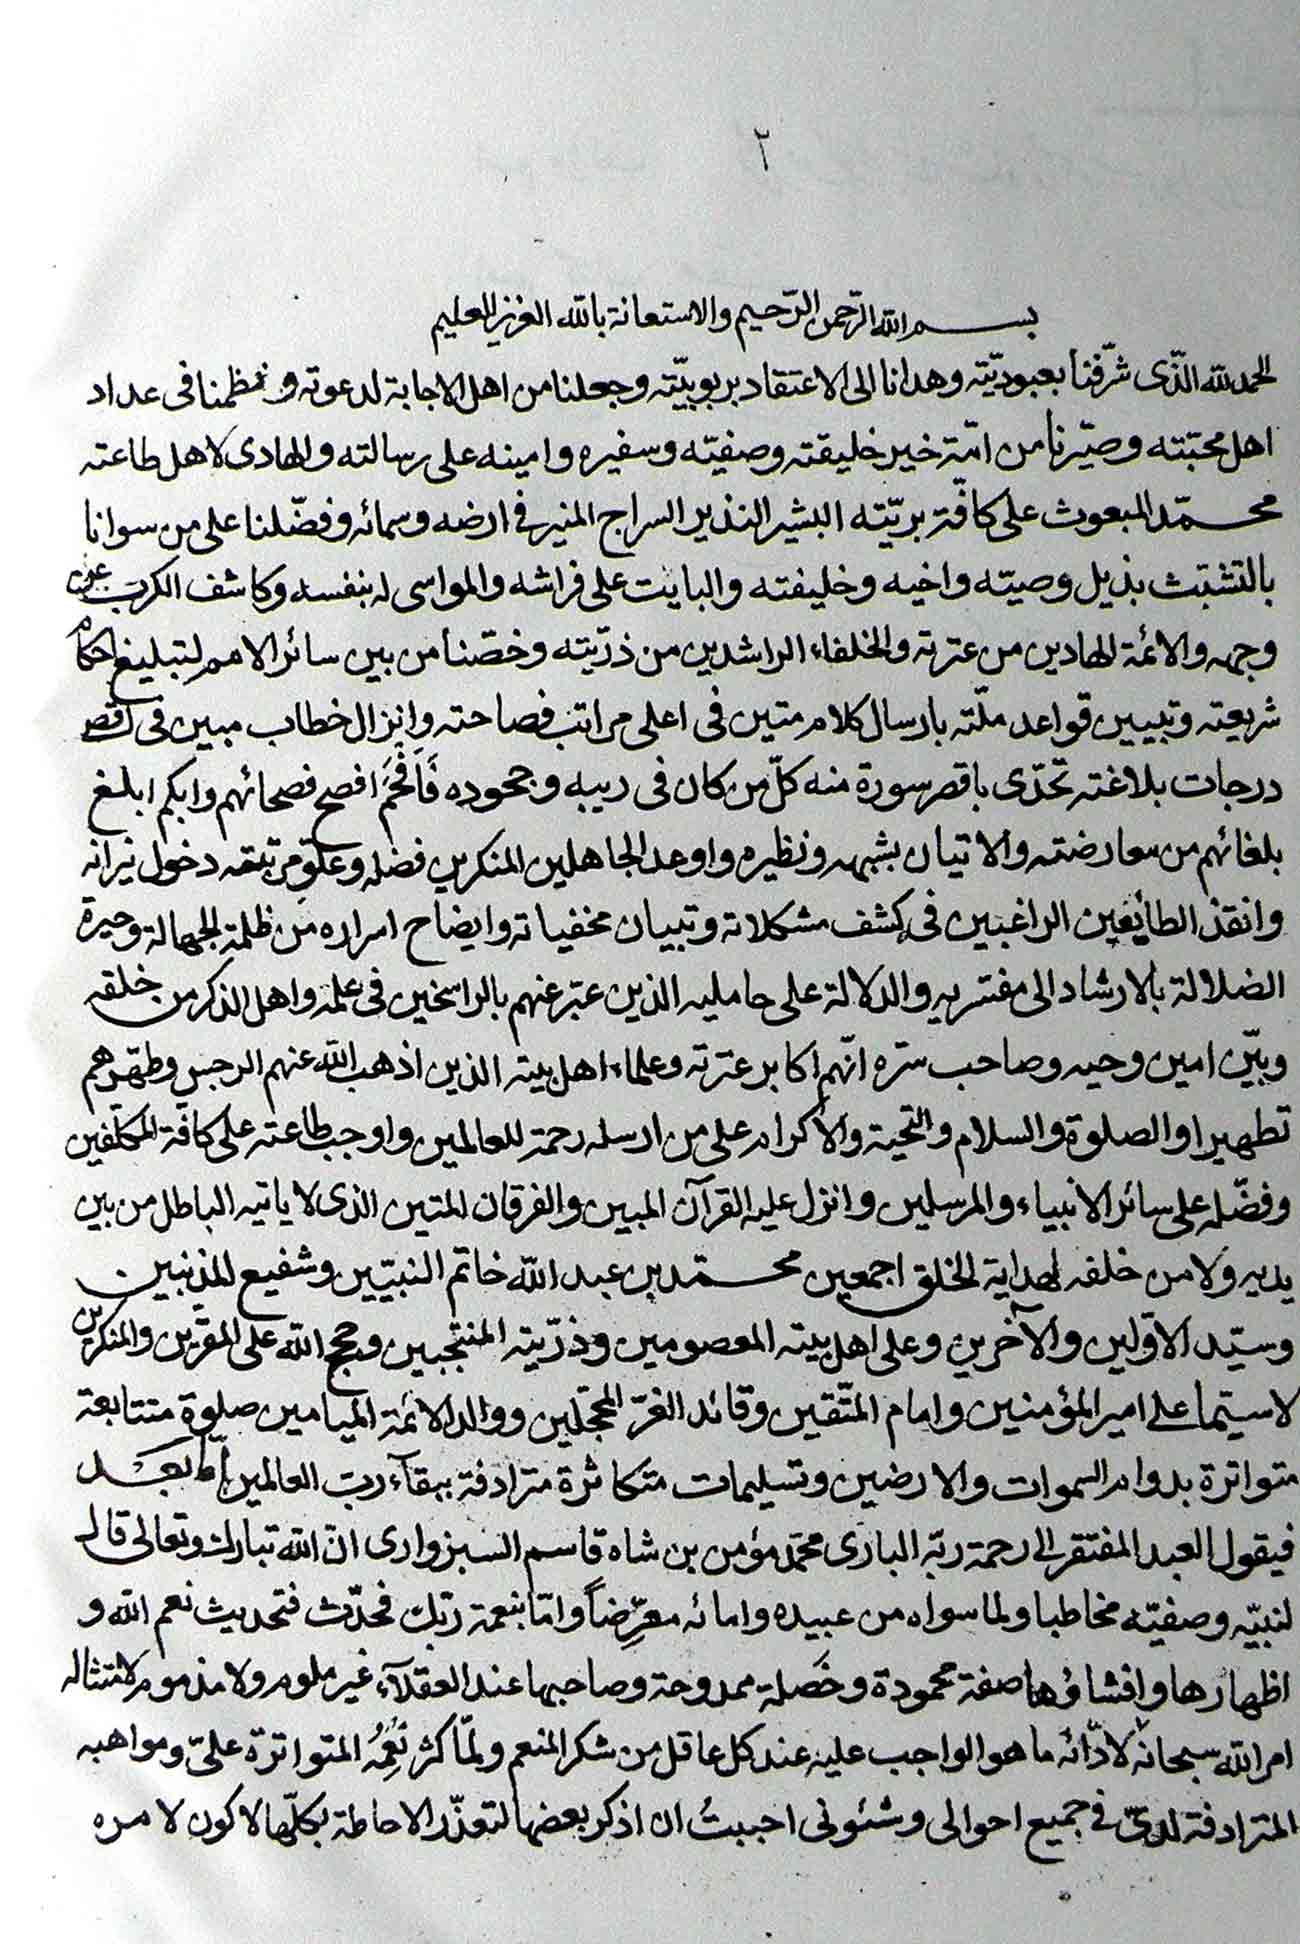 ٢
بسم الله الرّحمن الرّحيم والاستعانة بالله العزيز العليم
الحمد لله الذّى شرّفنا بعبوديّته وهدانا الى الاعتقاد بربوبيّته وجعلنا من اهل الاجابة لدعوته ونظمنا فى عداد
اهل محبّته وصيّرنا من امّة خير خليقته وصفيّه وسفيره وامينه على رسالته والهادى لاهل طاعته
محمّد المبعوث على كافّة بريّته البشير النذير السراج المنير فى ارضه وسمائه وفضّلنا على من سوانا
بالتشبّث بذيل وصيّه واخيه وخليفته والبايت على فراشه والمواسى له بنفسه وكاشف الكرب عن
وجهه والائمّة الهادين من عترته والخلفاء الراشدين من ذرّيته وخصّنا من بين سائر الامم لتبليغ احكام
شريعته وتبيين قواعد ملّته بارسال كلام متين فى اعلى مراتب فصاحته وانزال خطاب مبين فى اقصى
درجات بلاغته تحدّى باقصر سورة منه كلّ من كان فى ريبه وجحوده فَاَفْحَمَ افصح فصحائهم وابكم ابلغ
بلغائهم من معارضته والاتيان بشبهه ونظيره واوعد الجاهلين المنكرين فضله وعلوّ مرتبته دخول نيرانه
وانقذ الطائعين الراغبين فى كشف مشكلاته وتبيان مخفياته وايضاح اسراره من ظلمة الجهالة وحيرة
الضلالة بالارشاد الى مفسّريه والدلالة على حامليه الذين عبّر عنهم بالراسخين فى علمه واهل الذكر من خلقه
وبيّن امين وحيه وصاحب سرّه انّهم اكابر عترته وعلماء اهل بيته الذين اذهب الله عنهم الرجس وطهّرهم
تطهيرا والصلوة والسلام والتحية والأكرام على من ارسله رحمة للعالمين واوجب طاعته على كافّة المكلّفين
وفضّله على سائر الانبياء والمرسلين وانزل عليه القرآن المبين والفرقان المتين الذى لا ياتيه الباطل من بين
يديه ولا من خلفه لهداية الخلق اجمعين محمّد بن عبد الله خاتم النبيّين وشفيع المذنبين
وسيّد الاوّلين والآخرين وعلى اهل بيته المعصومين وذرّيته المنتجبين وحجج الله على المقرّين والمنكرين
لاسيّما على امير المؤمنين وامام المتّقين وقائد الغرّ المحجّلين ووالد الائمّة الميامين صلوة متتابعة
متواترة بدوام السموات والارضين وتسليمات متكاثرة مترادفة ببقآء ربّ العالمين امّا بعد
فيقول العبد المفتقر الى رحمة ربّه البارى محمّد مؤمن بن شاه قاسم السبزوارى انّ الله تبارك وتعالى قال
لنبيّه وصفيّه مخاطبا ولما سواه من عبيده وامائه معرِّضاً وامّا بنعمة ربّك فحدّث فتحديث نعم الله و
اظهارها وافشاؤها صفة محمودة وخَصلة ممدوحة وصاحبها عند العقلآء غير ملوم ولا مذموم لامتثاله
امر الله سبحانه لادّائه ما هو الواجب عليه عند كل عاقل من شكر المنعم ولمّا كثر نِعَمُه المتواترة علىّ ومواهبه
المترادفة لدىّ فى جميع احوالى وشئونى احببتُ ان اذكر بعضها لتعذّر الاحاطة بكلّها لاكون لامره